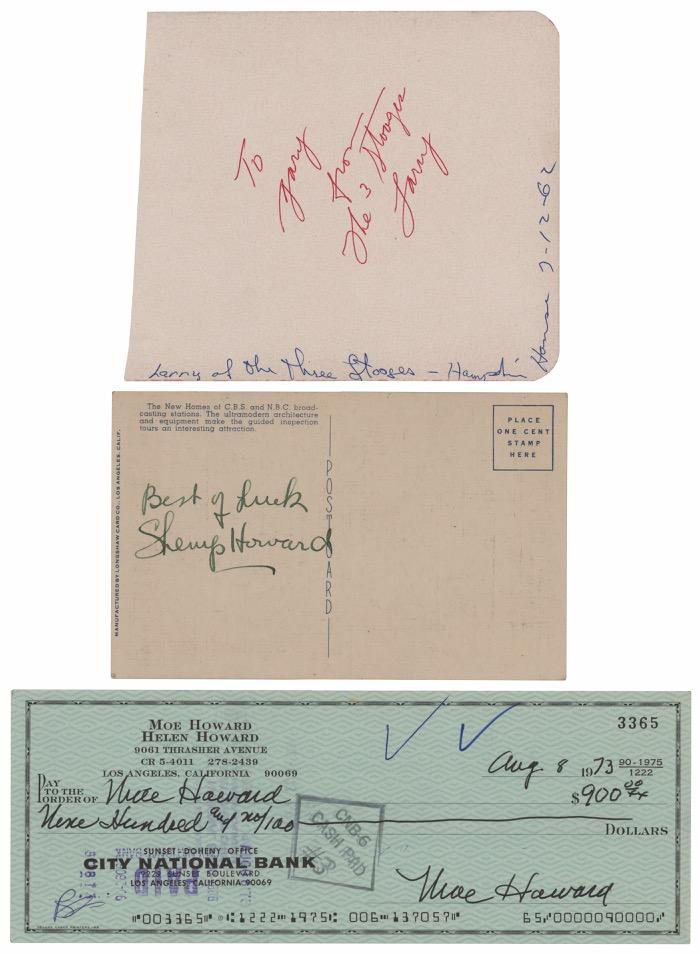 To
Gary
from
The 3 Stooges
Larry
Larry of the Three Stooges - Hampton House 7-12-62
The New Homes of C.B.S. and N.B.C. broad-
casting stations. The ultramodern architecture
and equipment make the guided inspection
tours an interesting attraction.
PLACE
ONE CENT
STAMP
HERE
MANUFACTURED BY LONGSHAW CARD CO., LOS ANGELES, CALIF.
POSTCARD
Best of Luck
Shemp Howard
MOE HOWARD
HELEN HOWARD
9061 THRASHER AVENUE
CR 5-4011 278-2439
LOS ANGELES, CALIFORNIA 90069
3365
Aug 8 1973
90-1975
1222
PAY
TO THE
ORDER OF Moe Howard $900 00/xx
Nine Hundred and no/100 DOLLARS
CNB-6
CASH PAID
#3
SUNSET-DOHENY OFFICE
CITY NATIONAL BANK
9229 SUNSET BOULEVARD
LOS ANGELES, CALIFORNIA 90069
PAID
Moe Howard
⑈003365⑈ ⑆1222⑉1975⑆ 006⑉137057⑈ 65 ⑈0000090000⑈